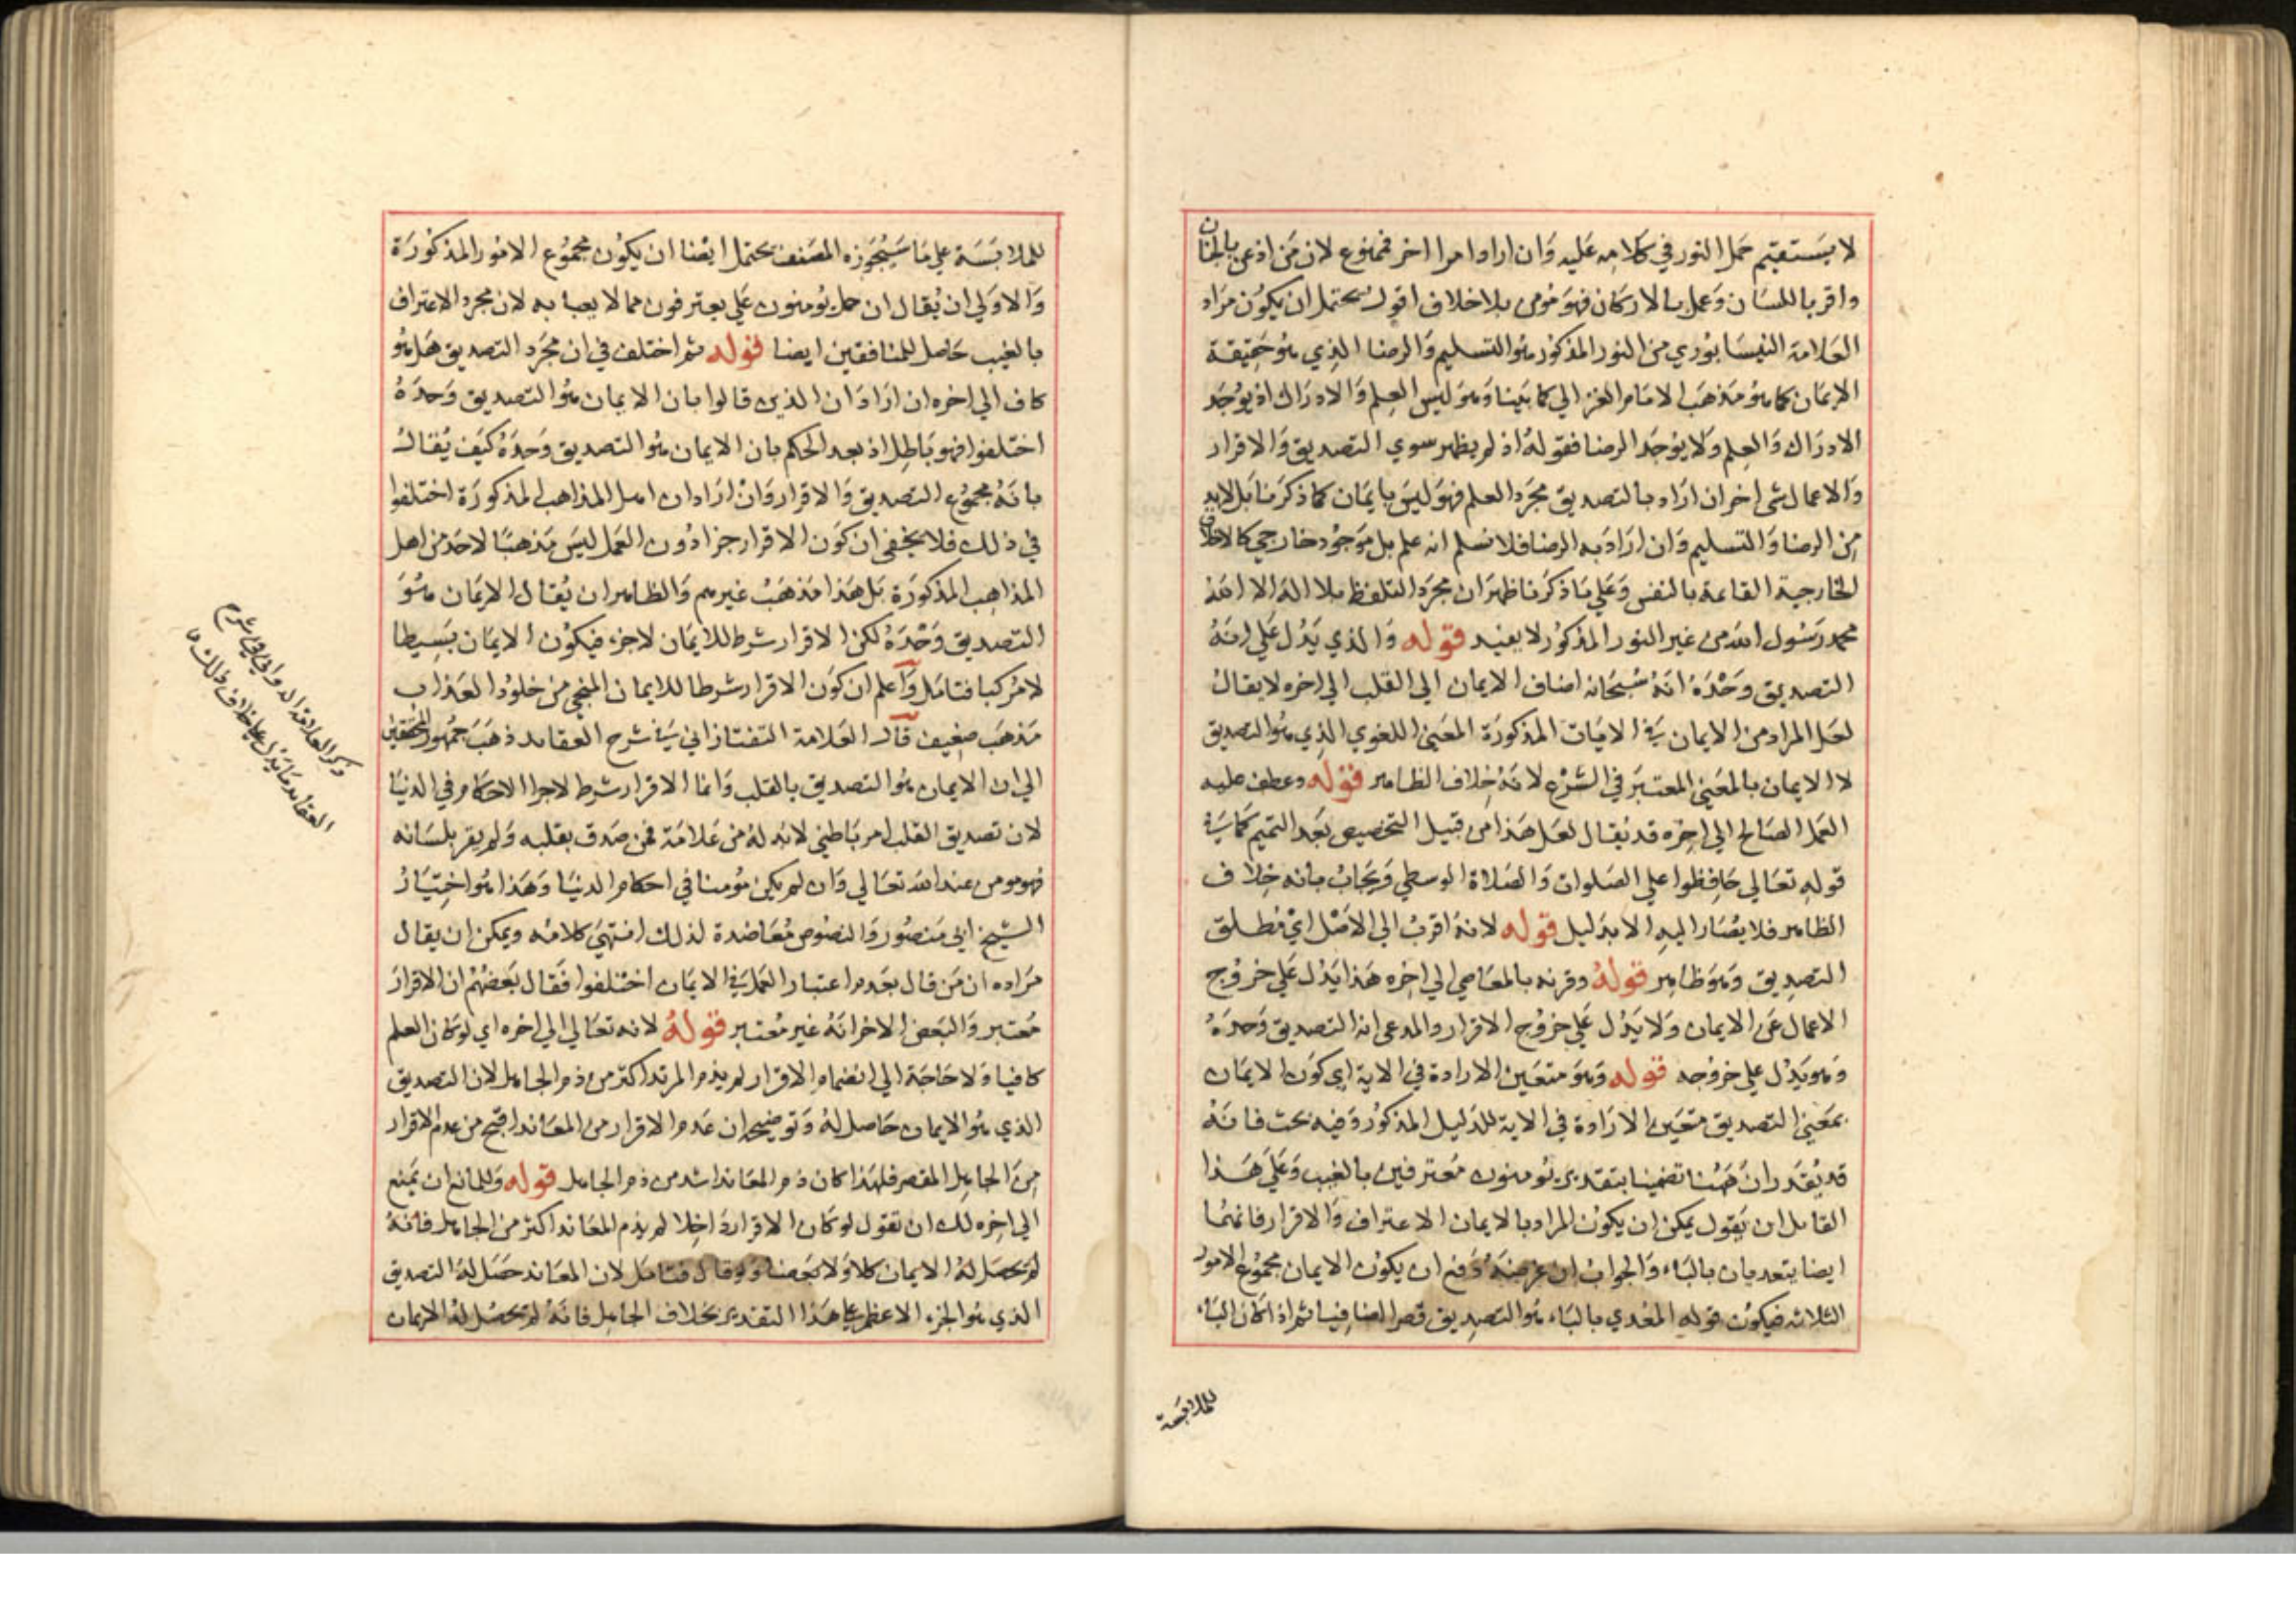 لا يستقيم حمل النور في كلامه عليه وان اراد امرا اخر فممنوع لان من اذعن بالجنان
واقر باللسان وعمل بالاركان فهو مومن بلا خلاف اقول يحتمل ان يكون مراد
العلامة النيسابوري من النور المذكور هو التسليم والرضا الذي هو حقيقة
الايمان كما هو مذهب الامام الغزالي كما بينا وهو ليس العلم والادراك اذ يوجد
الادراك والعلم ولا يوجد الرضا فقوله اذ لم يظهر سوي التصديق والاقرار
والاعمال شي اخر ان اراد بالتصديق مجرد العلم فهو ليس بايمان كما ذكرنا بل لابد
من الرضا والتسليم وان اراد به الرضا فلا نسلم انه علم بل موجود خارجي كالاخلاق
الخارجية القائمة بالنفس وعلي ما ذكرنا ظهر ان مجرد التلفظ بلا اله الا الله
محمد رسول الله من غير النور المذكور لا يفيد قوله والذي يدل علي انه
التصديق وحده انه سبحانه اضاف الايمان الي القلب الي اخره لا يقال
لعل المراد من الايمان في الايات المذكورة المعني اللغوي الذي هو التصديق
لا الايمان بالمعني المعتبر في الشرع لانه خلاف الظاهر قوله وعطف عليه
العمل الصالح الي اخره قد يقال لعل هذا من قبيل التخصيص بعد التعميم كما في
قوله تعالي حافظوا علي الصلوات والصلاة الوسطي ويجاب بانه خلاف
الظاهر فلا يصار اليه الا بدليل قوله لانه اقرب الي الاصل اي مطلق
التصديق وهو ظاهر قوله وقرنه بالمعاصي الي اخره هذا يدل علي خروج
الاعمال عن الايمان ولا يدل علي خروج الاقرار والمدعي انه التصديق وحده
وهو يدل علي خروجه قوله وهو متعين الارادة في الاية اي كون الايمان
بمعني التصديق متعين الارادة في الاية للدليل المذكور وفيه بحث فانه
قد يقدر ان ههنا تضمينا بتقدير يومنون معترفين بالغيب وعلي هذا
لقائل ان يقول يمكن ان يكون المراد بالايمان الاعتراف والاقرار فانهما
ايضا يتعديان بالباء والجواب ان غرضه دفع ان يكون الايمان مجموع الامور
الثلاثه فيكون قوله المعدي بالباء هو التصديق قصرا اضافيا ثم اذا كان الباء
للملابسة
للملابسة علي ما سيجوزه المصنف يحتمل ايضا ان يكون مجموع الامور المذكورة
والاولي ان يقال ان حمل يومنون علي يعترفون مما لا يعبا به لان مجرد الاعتراف
بالغيب حاصل للمنافقين ايضا قوله ثم اختلف في ان مجرد التصديق هل هو
كاف الي اخره ان اراد ان الذين قالوا بان الايمان هو التصديق وحده
اختلفوا فهو باطل اذ بعد الحكم بان الايمان هو التصديق وحده كيف يقال
بانه مجموع التصديق والاقرار وان اراد ان اهل المذاهب المذكورة اختلفوا
في ذلك فلا يخفي ان كون الاقرار جزا دون العمل ليس مذهبا لاحد من اهل
المذاهب المذكورة بل هذا مذهب غيرهم والظاهر ان يقال الايمان هو
التصديق وحده لكن الاقرار شرط للايمان لا جزء فيكون الايمان بسيطا
لا مركبا فتامل واعلم ان كون الاقرار شرطا للايمان المنجي من خلود العذاب
مذهب ضعيف قال العلامة التفتازاني في شرح العقايد ذهب جمهور المحققين
الي ان الايمان هو التصديق بالقلب وانما الاقرار شرط لاجرا الاحكام في الدنيا
لان تصديق القلب امر باطني لابد له من علامة فمن صدق بقلبه ولم يقر بلسانه
فهو مومن عند الله تعالي وان لم يكن مومنا في احكام الدنيا وهذا هو اختيار
الشيخ ابي منصور والنصوص معاضدة لذلك انتهي كلامه ويمكن ان يقال
مراده ان من قال بعدم اعتبار العمل في الايمان اختلفوا فقال بعضهم ان الاقرار
معتبر والبعض الاخر انه غير معتبر قوله لانه تعالي الي اخره اي لو كان العلم
كافيا ولا حاجة الي انضمام الاقرار لم يذم المرتد اكثر من ذم الجاهل لان التصديق
الذي هو الايمان حاصل له وتوضيحه ان عدم الاقرار من المعاند اقبح من عدم الاقرار
من الجاهل المقصر فلهذا كان ذم المعاند اشد من ذم الجاهل قوله وللمانع ان يمنع
الي اخره لك ان تقول لو كان الاقرار داخلا لم يذم المعاند اكثر من الجاهل فانه
لم يحصل له الايمان كلا ولا بعضا ولو قال فتامل لان المعاند حصل له التصديق
الذي هو الجزء الاعظم علي هذا التقدير بخلاف الجاهل فانه لم يحصل له الايمان
ذكر العلامة الدواني في شرح
العقائد ما يدل علي خلاف ذلك